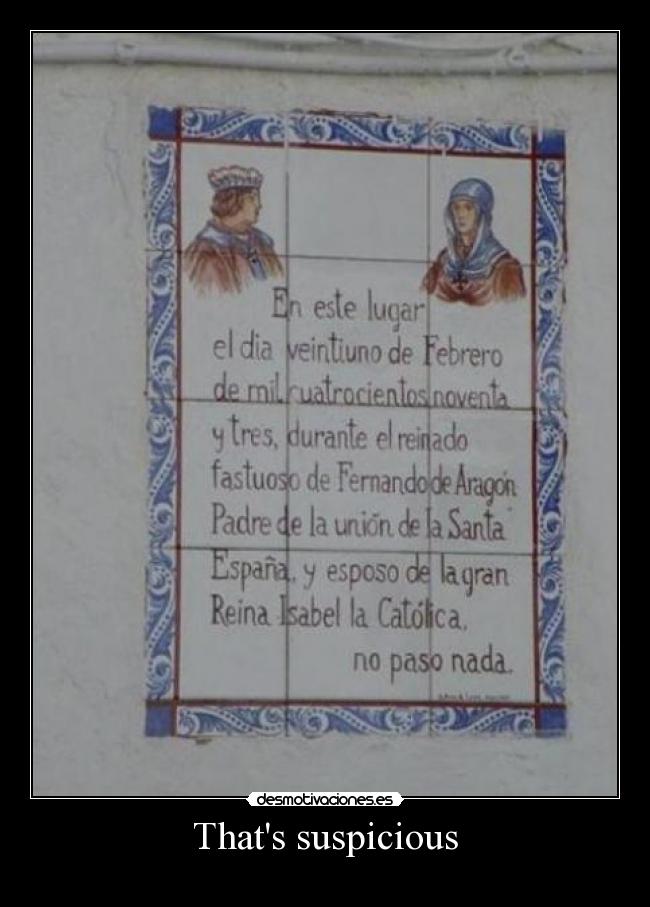 En este lugar
el dia veintiuno de Febrero
de mil cuatrocientos noventa
y tres, durante el reinado
fastuoso de Fernando de Aragón
Padre de la unión de la Santa
España, y esposo de la gran
Reina Isabel la Católica,
no paso nada.
desmotivaciones.es
That's suspicious